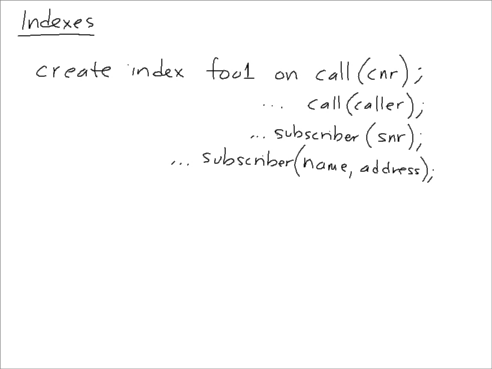 Indexes
create index foo1 on call(cnr);
... call(caller);
... subscriber(snr);
... subscriber(name, address);